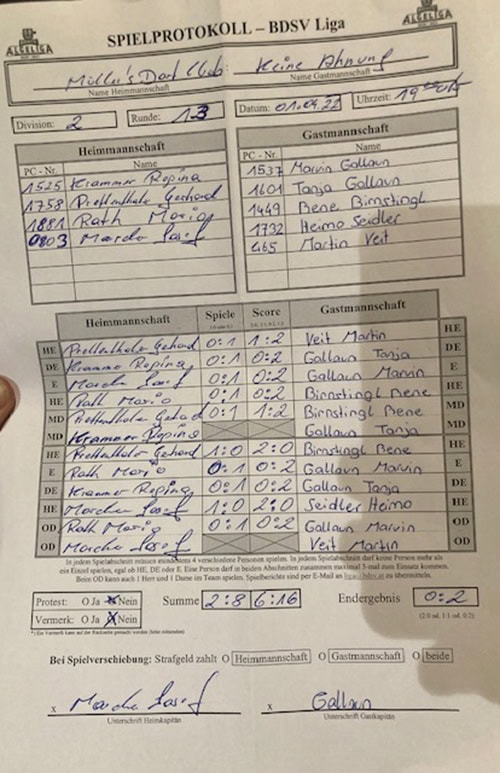 ALGELIGA SPIELPROTOKOLL – BDSV Liga ALGELIGA
Müller's Dart Club: Keine Ahnung
Name Heimmannschaft Name Gastmannschaft
Division: 2 Runde: 13 Datum: 01.04.22 Uhrzeit: 19
Heimmannschaft Gastmannschaft
PC - Nr. Name PC - Nr. Name
1525 Krammer Regina 1537 Marvin Gallaun
1758 Prettenthaler Gerhard 1601 Tanja Gallaun
1881 Rath Mario 1449 Rene Birnstingl
0803 Marcher Josef 1732 Heimo Seidler
465 Martin Veit
Heimmannschaft Spiele Score Gastmannschaft
HE Prettenthaler Gerhard 0:1 1:2 Veit Martin HE
DE Krammer Regina 0:1 0:2 Gallaun Tanja DE
E Marcher Josef 0:1 0:2 Gallaun Marvin E
HE Rath Mario 0:1 0:2 Birnstingl Rene HE
MD Prettenthaler Gerhard 0:1 1:2 Birnstingl Rene MD
MD Krammer Regina Gallaun Tanja MD
HE Prettenthaler Gerhard 1:0 2:0 Birnstingl Rene HE
E Rath Mario 0:1 0:2 Gallaun Marvin E
DE Krammer Regina 0:1 0:2 Gallaun Tanja DE
HE Marcher Josef 1:0 2:0 Seidler Heimo HE
OD Rath Mario 0:1 0:2 Gallaun Marvin OD
OD Marcher Josef Veit Martin OD
In jedem Spielabschnitt müssen mindestens 4 verschiedene Personen spielen. In jedem Spielabschnitt darf keine Person mehr als
ein Einzel spielen, egal ob HE, DE oder E. Eine Person darf in beiden Abschnitten zusammen maximal 3-mal zum Einsatz kommen.
Beim OD kann auch 1 Herr und 1 Dame im Team spielen. Spielberichte sind per E-Mail an zu übermitteln.
Protest: O Ja Nein Summe 2:8 6:16 Endergebnis 0:2
Vermerk: O Ja Nein (2:0 od. 1:1 od. 0:2)
*) Ein Vermerk kann auf der Rückseite gemacht werden (bitte mitsenden)
Bei Spielverschiebung: Strafgeld zahlt O Heimmannschaft O Gastmannschaft O beide
x Marcher Josef x Gallaun
Unterschrift Heimkapitän Unterschrift Gastkapitän